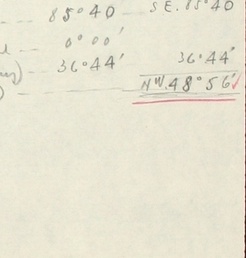 85°40 SE. 85°40
0°00'
36°44' 36°44'
NW. 48°56'